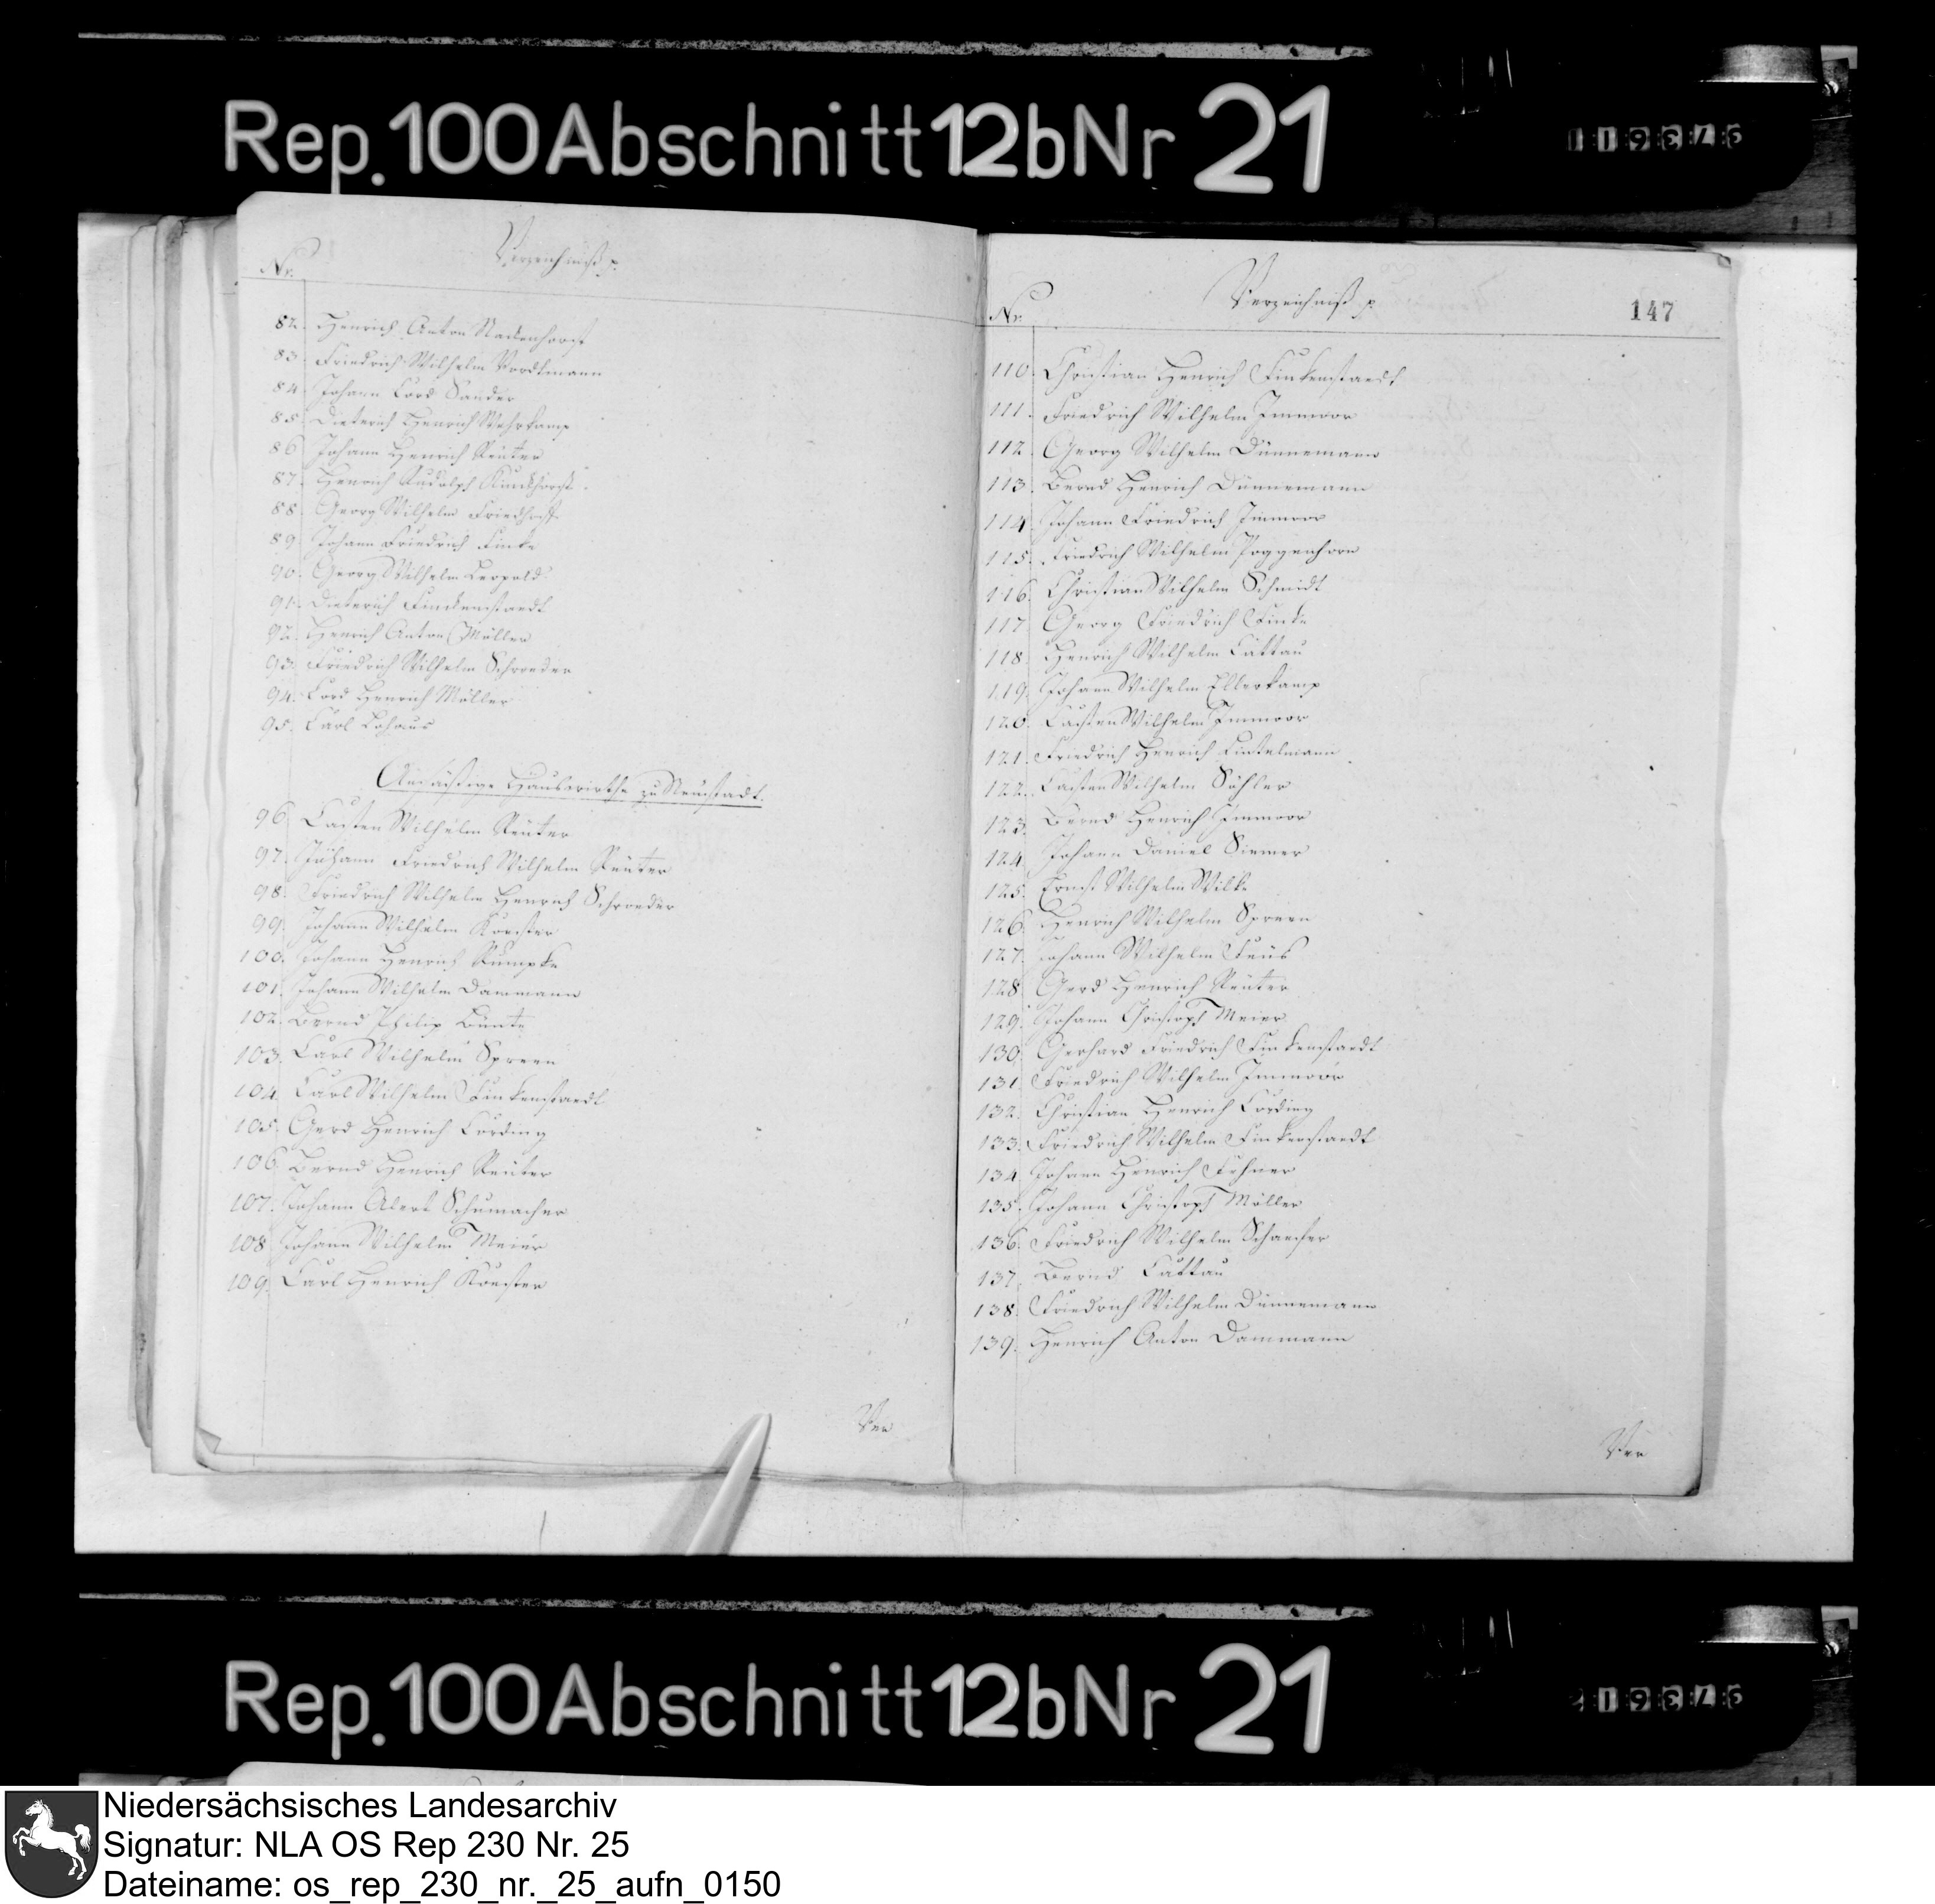 Rep. 100 Abschnitt 12b Nr 21
Nr.
Verzeichniß p.
82. Henrich Anton Stackenhorst
83. Friedrich Wilhelm Vordtmann
84. Johann Cord Sander
85. Dieterich Henrich Wehrkamp
86. Johann Henrich Reuter
87. Henrich Rudolph
88. Georg Wilhelm Friedhoff
89. Johann Friedrich Finke
90. Georg Wilhelm Leopold
91. Dieterich Finckenstaedt
92. Henrich Anton Möller
93. Friedrich Wilhelm Schroeder
94. Cord Henrich Möller
95. Carl Lohaus
Hauswirthe zu Neustadt.
96. Casten Wilhelm Reuter
97. Johann Friedrich Wilhelm Reuter
98. Friedrich Wilhelm Henrich Schroeder
99. Johann Wilhelm Koester
100. Johann Henrich Rumpke
101. Johann Wilhelm Dammann
102. Bernd Philip Bunte
103. Carl Wilhelm Spreen
104. Carl Wilhelm Finkenstaedt
105. Gerd Henrich Cording
106. Bernd Henrich Reuter
107. Johann Albert Schumacher
108. Johann Wilhelm Meier
109. Carl Henrich Koester
Ver
Nr.
Verzeichniß p.
147
110. Christian Henrich Finkenstaedt
111. Friedrich Wilhelm Immoor
112. Georg Wilhelm Dünnemann
113. Bernd Henrich Dünnemann
114. Johann Friedrich Immoor
115. Friedrich Wilhelm Poggenhorn
116. Christian Wilhelm Schmidt
117. Georg Friedrich Finke
118. Henrich Wilhelm Cattau
119. Johann Wilhelm Ellerkamp
120. Casten Wilhelm Immoor
121. Friedrich Henrich Lintelmann
122. Casten Wilhelm Söhler
123. Bernd Henrich Immoor
124. Johann Daniel Siemer
125. Ernst Wilhelm Wilke
126. Henrich Wilhelm Spreen
127. Johann Wilhelm
128. Gerd Henrich Reuter
129. Johann Christoph Meier
130. Gerhard Friedrich Finkenstaedt
131. Friedrich Wilhelm Immoor
132. Christian Henrich Cording
133. Friedrich Wilhelm Finkenstaedt
134. Johann Hinrich
135. Johann Christoph Möller
136. Friedrich Wilhelm Schaefer
137. Bernd Cattau
138. Friedrich Wilhelm Dünnemann
139. Henrich Anton Dammann
Ver
Rep. 100 Abschnitt 12b Nr 21
Niedersächsisches Landesarchiv
Signatur: NLA OS Rep 230 Nr. 25
Dateiname: os_rep_230_nr._25_aufn_0150